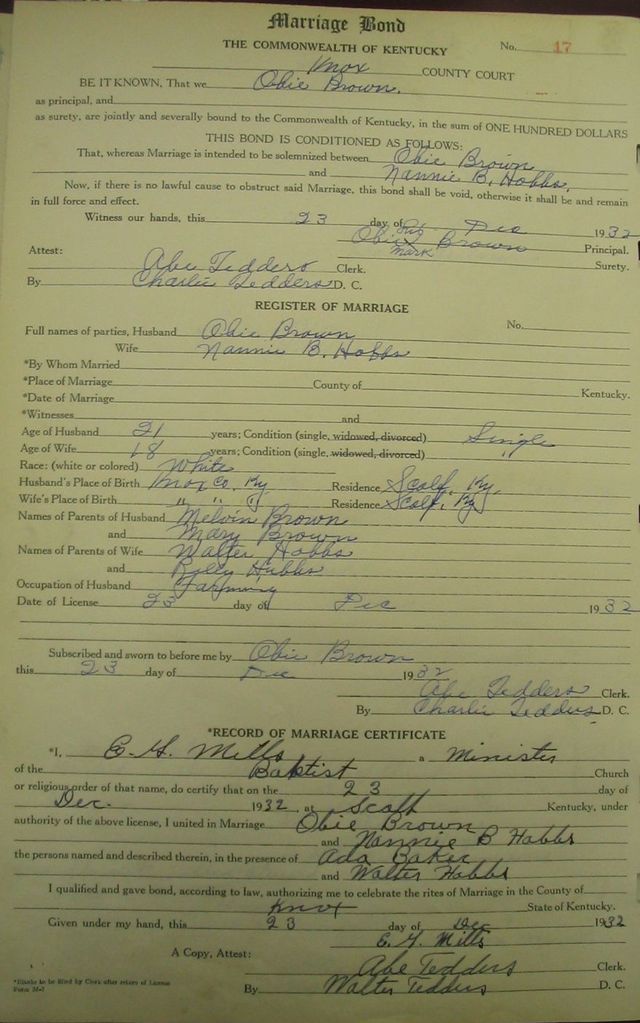 Marriage Bond
THE COMMONWEALTH OF KENTUCKY No. 17
Knox COUNTY COURT
BE IT KNOWN, That we Obie Brown.
as principal, and
as surety, are jointly and severally bound to the Commonwealth of Kentucky, in the sum of ONE HUNDRED DOLLARS
THIS BOND IS CONDITIONED AS FOLLOWS:
That, whereas Marriage is intended to be solemnized between Obie Brown
and Nannie B. Hobbs,
Now, if there is no lawful cause to obstruct said Marriage, this bond shall be void, otherwise it shall be and remain
in full force and effect.
Witness our hands, this 23 day of Dec 1932
Obie his mark Brown Principal.
Attest: Abe Tedders Clerk. Surety.
By Charlie Tedders D. C.
REGISTER OF MARRIAGE
Full names of parties, Husband Obie Brown No.
Wife Nannie B. Hobbs
*By Whom Married
*Place of Marriage County of Kentucky.
*Date of Marriage
*Witnesses and
Age of Husband 21 years; Condition (single, widowed, divorced) Single
Age of Wife 18 years; Condition (single, widowed, divorced) "
Race: (white or colored) White
Husband's Place of Birth Knox Co. Ky Residence Scalf, Ky.
Wife's Place of Birth " " " Residence Scalf, Ky
Names of Parents of Husband Melvin Brown
and Mary Brown
Names of Parents of Wife Walter Hobbs
and Hobbs
Occupation of Husband Farming
Date of License 23 day of Dec 1932
Subscribed and sworn to before me by Obie Brown
this 23 day of Dec 1932
Abe Tedders Clerk.
By Charlie Tedders D. C.
*RECORD OF MARRIAGE CERTIFICATE
*I, E. G. Mills a Minister
of the Baptist Church
or religious order of that name, do certify that on the 23 day of
Dec. 1932, at Scalf Kentucky, under
authority of the above license, I united in Marriage Obie Brown
and Nannie B Hobbs
the persons named and described therein, in the presence of Ada Baker
and Walter Hobbs
I qualified and gave bond, according to law, authorizing me to celebrate the rites of Marriage in the County of
Knox State of Kentucky.
Given under my hand, this 23 day of Dec 1932
E. G. Mills
A Copy, Attest: Abe Tedders Clerk.
By Walter Tedders D. C.
*Blanks to be filled by Clerk after return of License
Form M-7